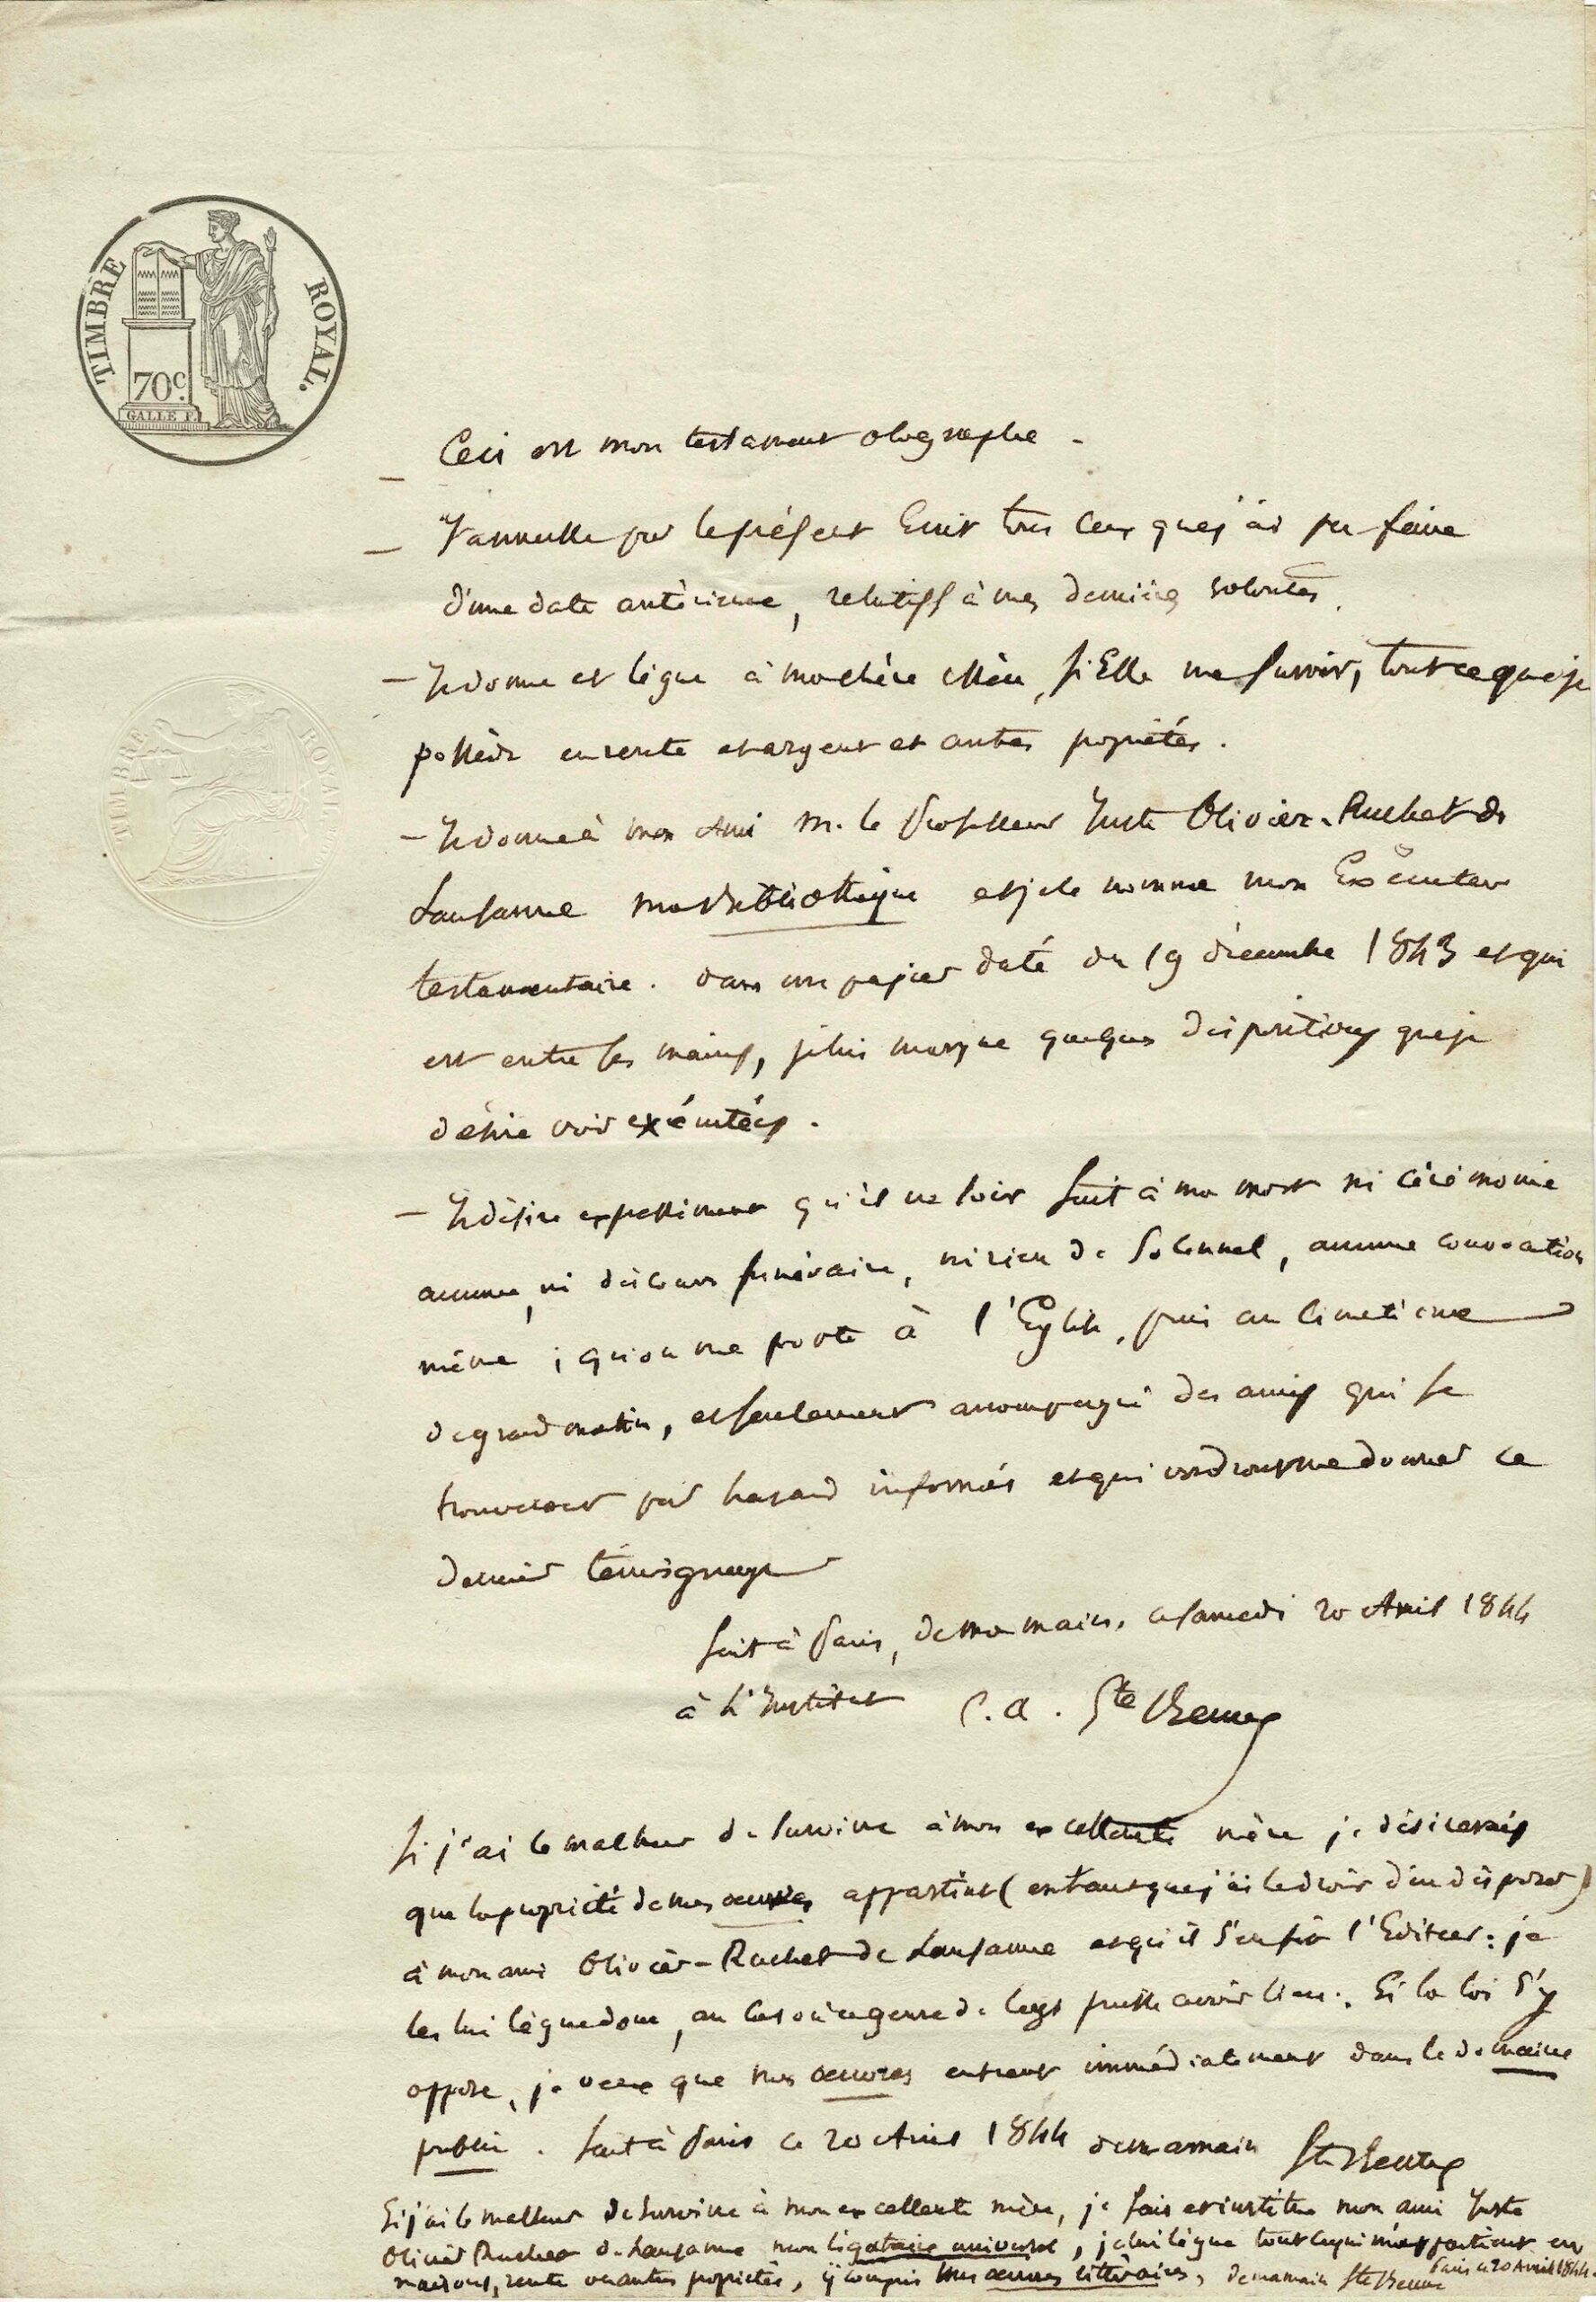 TIMBRE ROYAL.
70c.
GALLE F.
TIMBRE ROYAL
— Ceci est mon testament olographe -
— J'annulle par le présent Ecrit tous ceux que j'ai pu faire
d'une date antérieure, relatifs à mes dernières volontés.
— Je donne et lègue à ma chère Mère, si Elle me survit, tout ce que je
possède en rente et argent et autres propriétés.
— Je donne à mon Ami M. le Professeur Juste Olivier-Ruchet de
Lausanne ma bibliothèque et je le nomme mon Exécuteur
testamentaire. dans un papier daté du 19 décembre 1843 et qui
est entre ses mains, je lui marque quelques dispositions que je
désire voir exécutées.
— Je désire expressément qu'il ne soit fait à ma mort ni cérémonie
aucune, ni discours funéraire, ni rien de solennel, aucune convocation
même ; qu'on me porte à l'Eglise, puis au cimetière
de grand matin, et seulement accompagné des amis qui se
trouveront par hasard informés et qui voudront me donner ce
dernier témoignage
fait à Paris, de ma main, ce samedi 20 Avril 1844
à L'Institut C. A. Ste Beuve
Si j'ai le malheur de survivre à mon excellente mère je désirerais
que la propriété de mes œuvres appartint (en tant que j'ai le droit d'en disposer)
à mon ami Olivier-Ruchet de Lausanne et qu'il s'en fit l'Editeur : je
les lui lègue donc, au cas où ce genre de legs puisse avoir lieu. Si la loi s'y
oppose, je veux que mes œuvres entrent immédiatement dans le domaine
public. fait à Paris ce 20 Avril 1844 de ma main Ste Beuve
Si j'ai le malheur de survivre à mon excellente mère, je fais et institue mon ami Juste
Olivier Ruchet de Lausanne mon légataire universel, je lui lègue tout ce qui m'appartient en
maisons, rente ou autres propriétés, y compris mes œuvres littéraires, de ma main Ste Beuve Paris ce 20 Avril 1844.